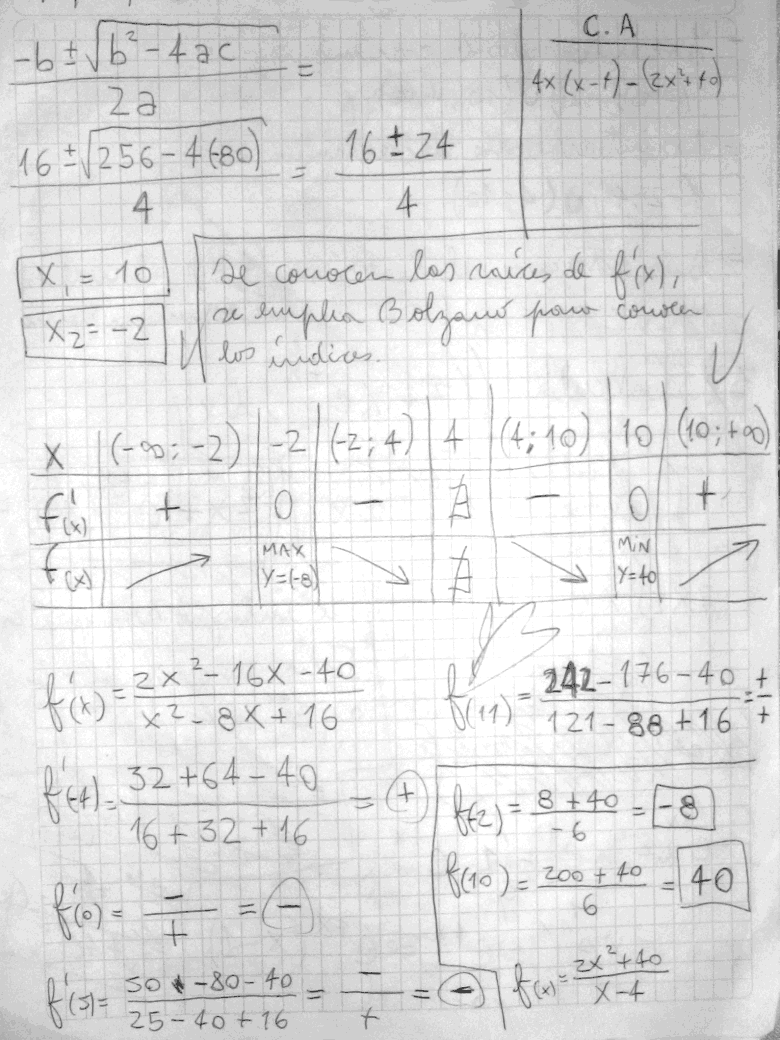 -b ± √(b² - 4ac) / 2a =
C.A
4x(x-4) - (2x²+40)
16 ± √(256 - 4(-80)) / 4 = 16 ± 24 / 4
x₁ = 10
x₂ = -2
Se conocen las raíces de f'(x),
se emplea Bolzano para conocer
los índices.
X | (-∞; -2) | -2 | (-2; 4) | 4 | (4; 10) | 10 | (10; +∞)
f'(x) | + | 0 | - | ∄ | - | 0 | +
f(x) | ↗ | MAX Y=(-8) | ↘ | ∄ | ↘ | MIN Y=40 | ↗
f'(x) = 2x² - 16x - 40 / x² - 8x + 16
f(11) = 242 - 176 - 40 / 121 - 88 + 16 = + / +
f'(-4) = 32 + 64 - 40 / 16 + 32 + 16 = +
f(-2) = 8 + 40 / -6 = -8
f(10) = 200 + 40 / 6 = 40
f'(0) = - / + = -
f'(5) = 50 - 80 - 40 / 25 - 40 + 16 = - / + = -
f(x) = 2x² + 40 / x - 4